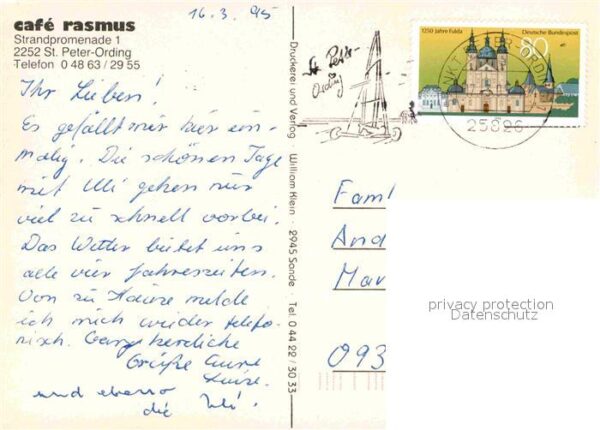 16.3.95
café rasmus
Strandpromenade 1
2252 St. Peter-Ording
Telefon 0 48 63 / 29 55
Ihr Lieben!
Es gefällt mir hier ein-
malig. Die schönen Tage
mit Uli gehen nur
viel zu schnell vorbei.
Das Wetter bietet uns
alle vier Jahreszeiten.
Von zu Hause melde
ich mich wieder telefo-
nisch. Ganz herzliche
Grüße Eure
Luise.
und ebenso
die Uli.
Druckerei und Verlag William Klein · 2945 Sande · Tel. 0 44 22 / 30 33
St. Peter-
Ording
1250 Jahre Fulda Deutsche Bundespost
80
SANKT PETER-ORDING
25826
Fam
And
Mar
093
privacy protection
Datenschutz